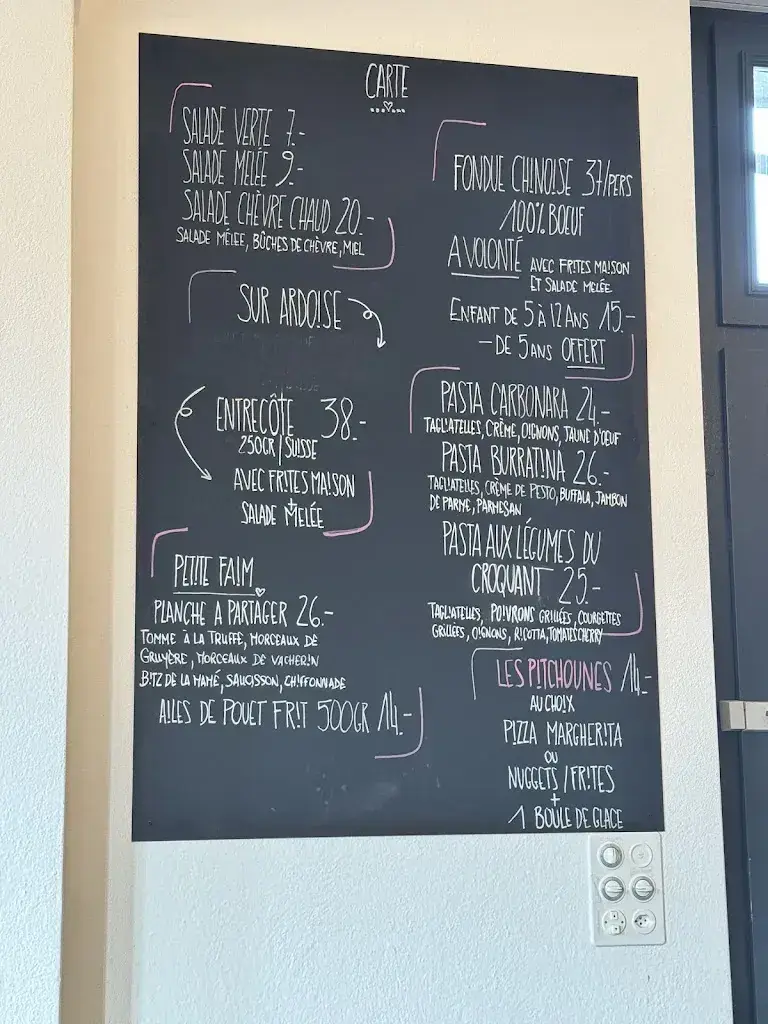 CARTE
SALADE VERTE 7.-
SALADE MELÉE 9.-
SALADE CHÈVRE CHAUD 20.-
SALADE MÉLEE, BÛCHES DE CHÈVRE, MIEL
SUR ARDOISE
ENTRECÔTE 38.-
250GR / SUISSE
AVEC FRITES MAISON
+
SALADE MELÉE
PETITE FAIM
PLANCHE A PARTAGER 26.-
TOMME À LA TRUFFE, MORCEAUX DE
GRUYÈRE, MORCEAUX DE VACHERIN
BITZ DE LA MAMÉ, SAUCISSON, CHIFFONNADE
AILES DE POUET FRIT 500GR 14.-
FONDUE CHINOISE 37/PERS
100% BOEUF
A VOLONTÉ AVEC FRITES MAISON
ET SALADE MELÉE.
ENFANT DE 5 À 12 ANS 15.-
- DE 5 ANS OFFERT
PASTA CARBONARA 24.-
TAGLIATELLES, CRÈME, OIGNONS, JAUNE D'ŒUF
PASTA BURRATINA 26.-
TAGLIATELLES, CRÈME DE PESTO, BUFFALA, JAMBON
DE PARME, PARMESAN
PASTA AUX LÉGUMES DU
CROQUANT 25.-
TAGLIATELLES, POIVRONS GRILLÉES, COURGETTES
GRILLÉES, OIGNONS, RICOTTA, TOMATES CHERRY
LES PITCHOUNES 14.-
AU CHOIX
PIZZA MARGHERITA
OU
NUGGETS / FRITES
+
1 BOULE DE GLACE